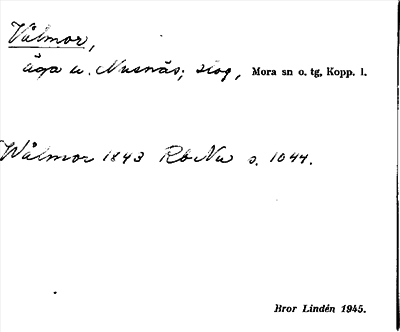 Vålmor,
äga u. Nusnäs; skog, Mora sn o. tg, Kopp. l.
Wålmor 1843 Rb Nu s. 1044.
Bror Lindén 1945.